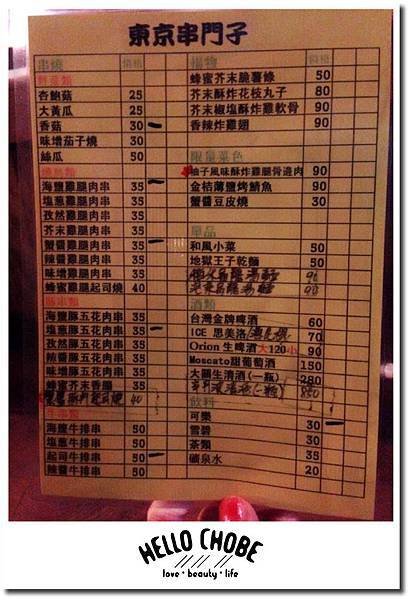 東京串門子
串燒 價格
蔬菜類
杏鮑菇 25
大黃瓜 25
香菇 30
味增茄子燒 30
絲瓜 50
海鹽雞腿肉串 35
塩蔥雞腿肉串 35
孜然雞腿肉串 35
芥末雞腿肉串 35
蟹醬雞腿肉串 35
辣醬雞腿肉串 35
味增雞腿肉串 35
蜂蜜雞腿起司燒 40
豚串類
海鹽豚五花肉串 35
塩蔥豚五花肉串 35
孜然豚五花肉串 35
辣醬豚五花肉串 35
味增豚五花肉串 35
蜂蜜芥末香腸 35
40
牛串類
海鹽牛排串 50
塩蔥牛排串 50
起司牛排串 50
辣醬牛排串 50
揚物 價格
蜂蜜芥末脆薯條 50
芥末酥炸花枝丸子 80
芥末椒塩酥炸雞軟骨 90
香辣炸雞翅 90
限量菜色
柚子風味酥炸雞腿骨邊肉 90
金桔薄鹽烤鯖魚 90
蟹醬豆皮燒 30
單品
和風小菜 50
地獄王子乾麵 50
90
酒類
台灣金牌啤酒 60
ICE 思美洛 70
Orion 生啤酒 大120小 90
Moscato甜葡萄酒 150
大關生清酒(一瓶) 280
880
飲料
可樂 30
雪碧 30
茶類 35
礦泉水 20
HELLO CHOBE
love · beauty · life